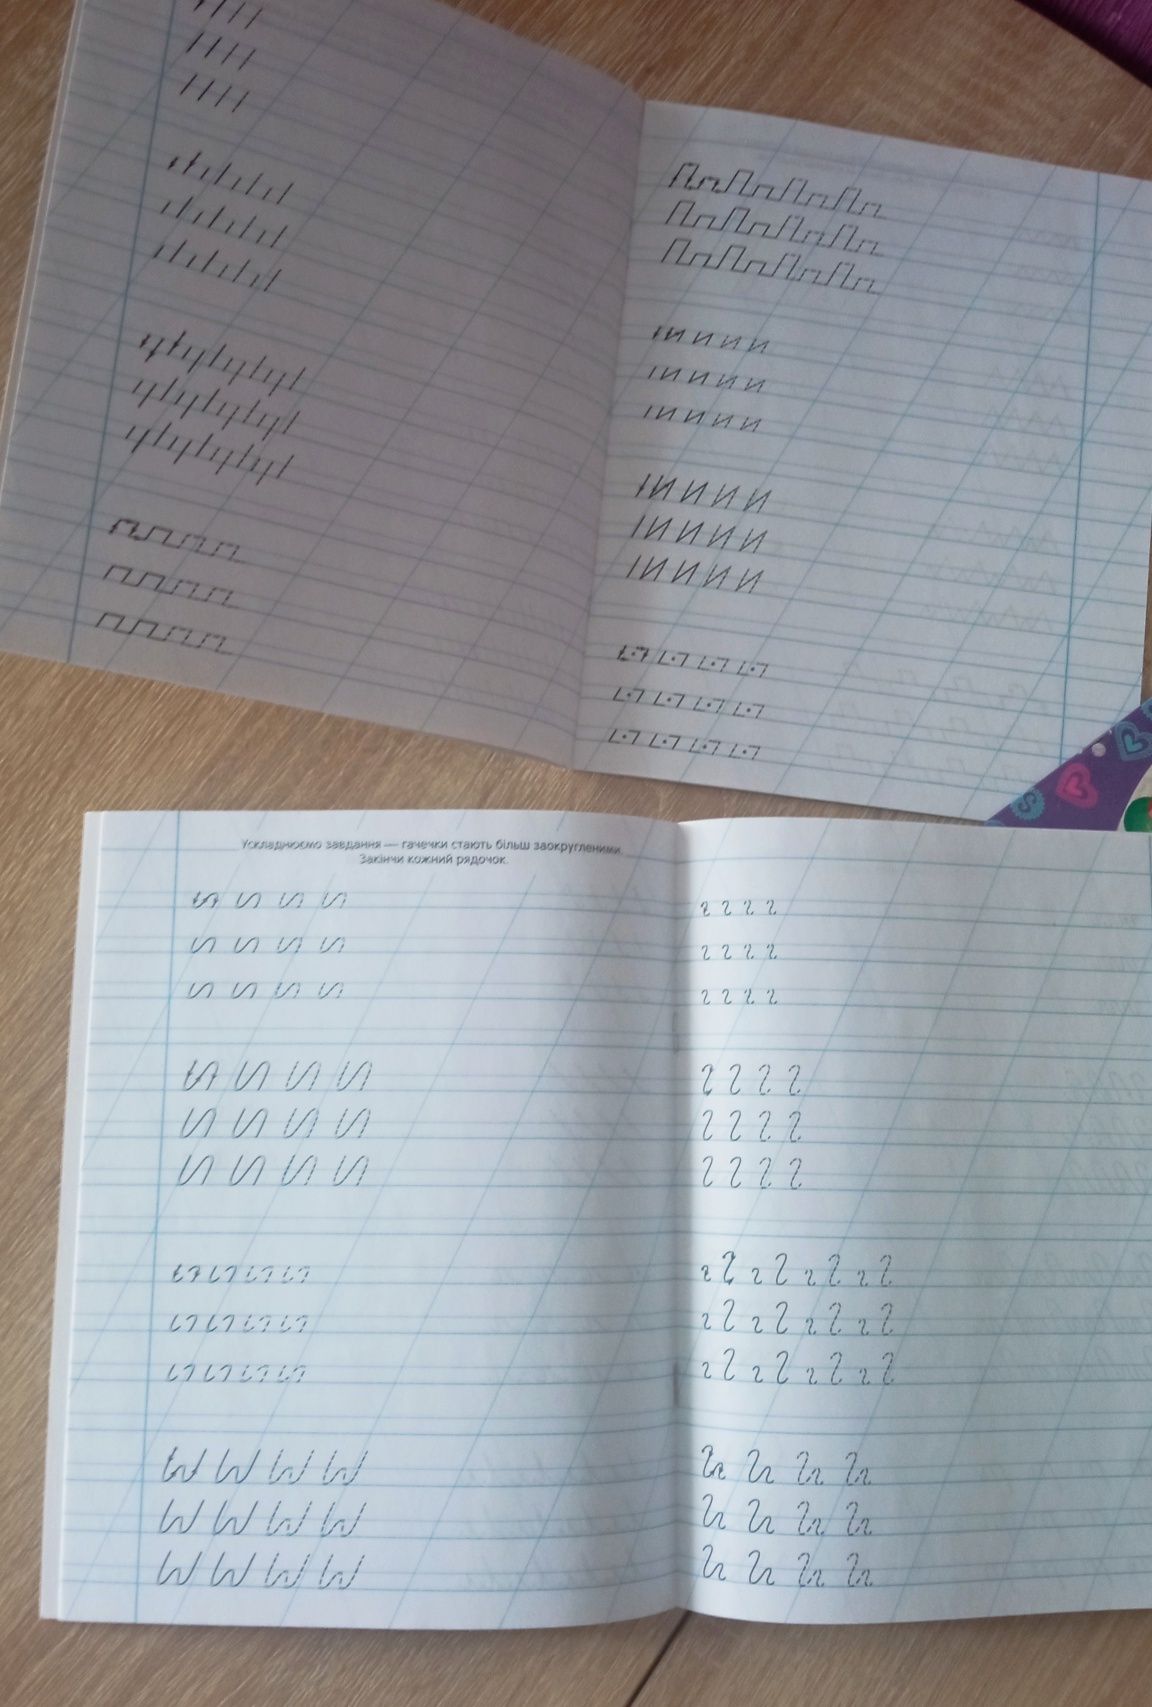 Ускладнюємо завдання — гачечки стають більш заокругленими.
Закінчи кожний рядочок.